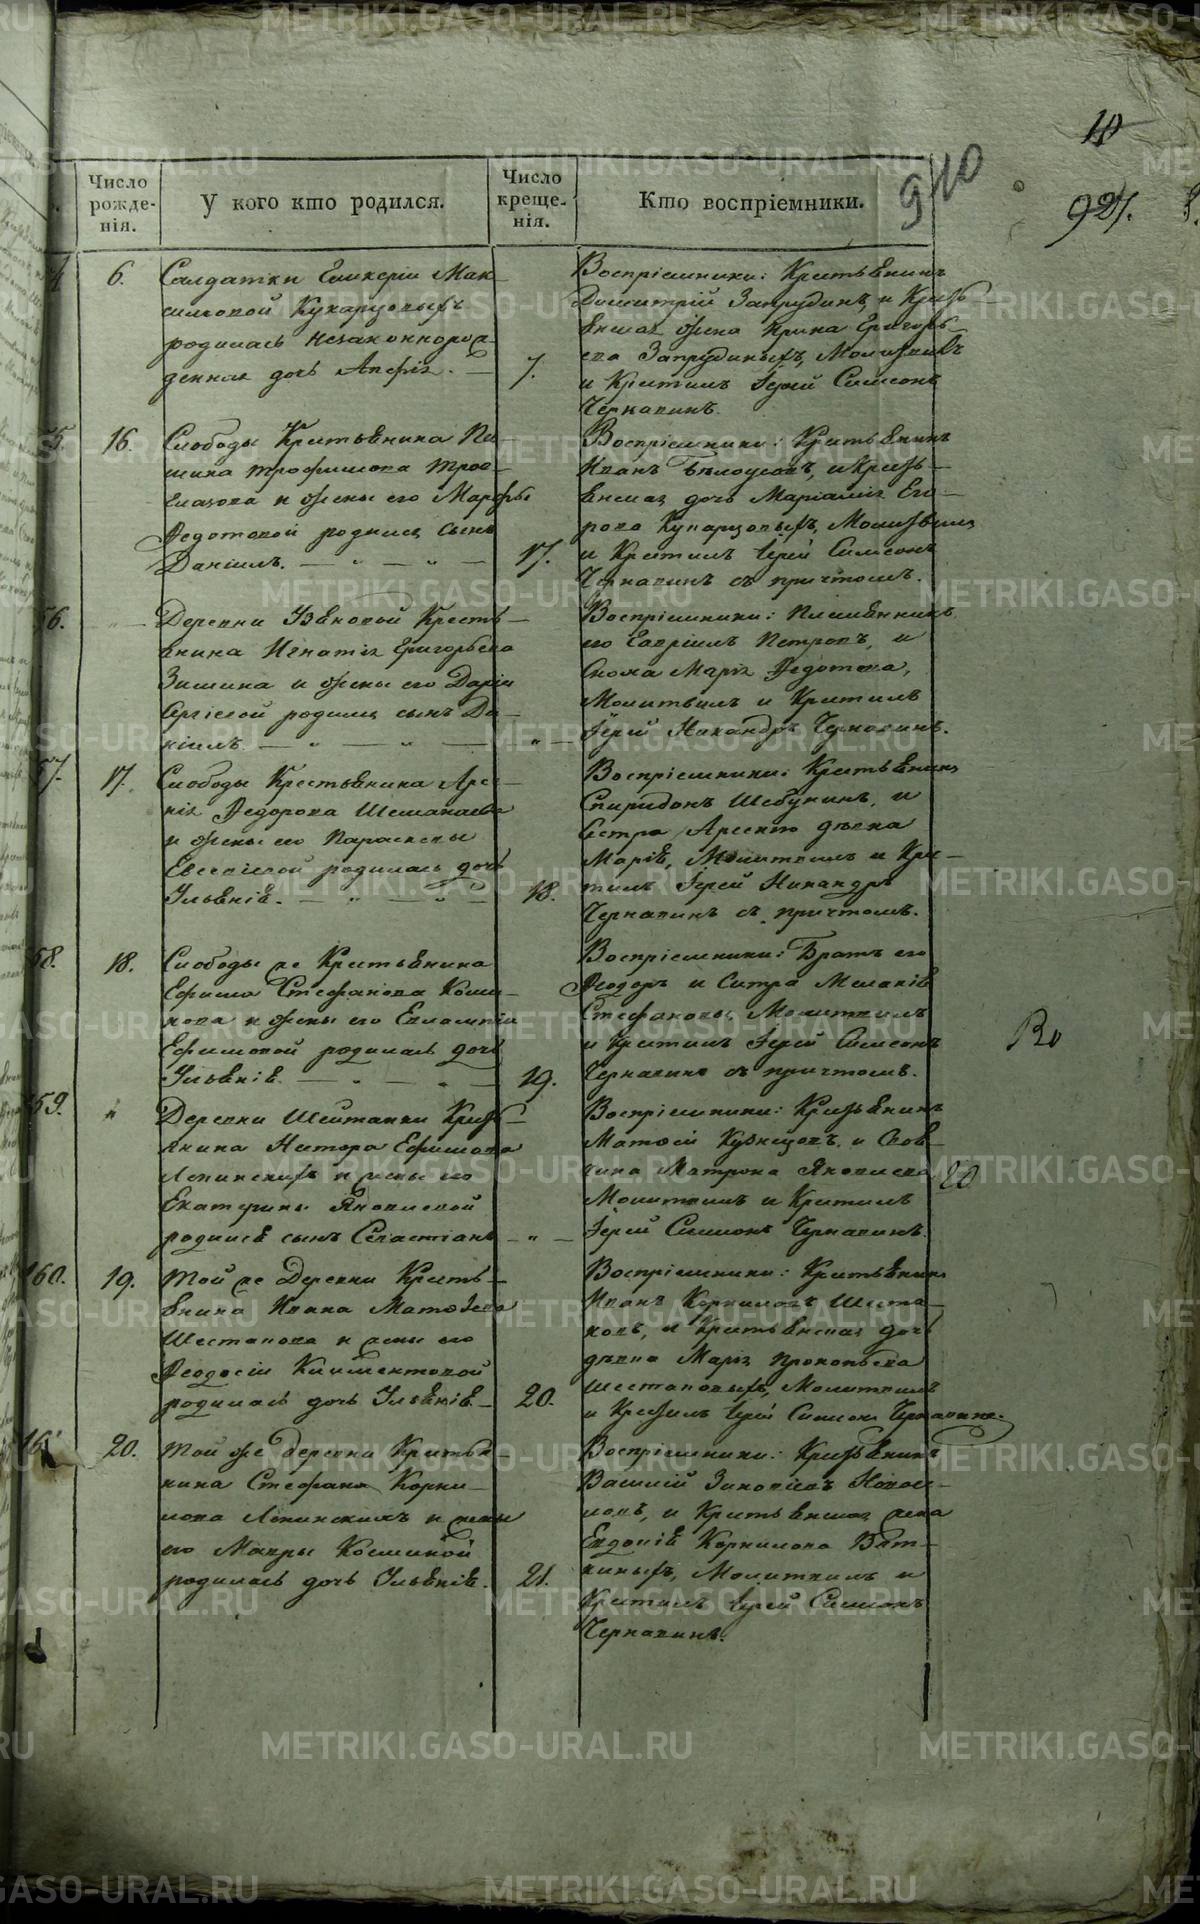 METRIKI.GASO-URAL.RU
10
910
921.
Число рожденія.
У кого кто родился.
Число крещенія.
Кто воспріемники.
6.
Салдатки Гликеріи Мак-
симовой Кухарцовыхъ
родилась незаконнорож-
денная дочь Анфія. —
7.
Воспріемники: Крестьянинъ
Димитрій Запрудинъ, и Кресть
янская жена Ирина Григорь-
ева Запрудиныхъ, Молитвилъ
и Крестилъ Іерей Симеонъ
Чернавинъ.
55.
16.
Слободы Крестьянина Пи-
мина Трофимова
и жены его Марфы
Ѳедотовой родился сынъ
Даніилъ. — „ — „ —
17.
Воспріемники: Крестьянинъ
Иванъ Бѣлоусовъ, и Кресть-
янская дочь Маріамія Его-
рова Кухарцовыхъ, Молитвилъ
и Крестилъ Іерей Симеонъ
Чернавинъ съ причтомъ.
56.
Деревни Крестъ-
янина Игнатія Григорьева
Зимина и жены его Даріи
Сергіевой родился сынъ Да-
ніилъ. — „ — „ —
„
Воспріемники: Племянникъ
его Гавріилъ Петровъ, и
Сноха Марія Ѳедотова,
Молитвилъ и Крестилъ
Іерей Никандръ Чернавинъ.
57.
17.
Слободы Крестьянина Арсе-
нія Ѳедорова Шеманаева
и жены его Параскевы
Евсевіевой родилась дочь
Ульянія. — „ — „ —
18.
Воспріемники: Крестьянинъ
Спиридонъ Шебунинъ, и
Сестра Арсенію дѣвка
Марія, Молитвилъ и Кре-
стилъ Іерей Никандръ
Чернавинъ съ причтомъ.
58.
18.
Слободы же Крестьянина
Ефима Стефанова
и жены его Евлампіи
Ефимовой родилась дочь
Ульянія. — — —
19.
Воспріемники: Братъ его
Ѳедоръ и Систра Меланія
Стефановы. Молитвилъ
и Крестилъ Іерей Симеонъ
Чернавинъ съ причтомъ.
59.
„
Деревни Шайтанки Кресть-
янина Нестора Ефимова
Лепинскихъ и жены его
Екатерины Яковлевой
родился сынъ Севастіанъ
„
Воспріемники: Крестьянинъ
Матѳей Кузнецовъ, и
Матрона Яковлева
Молитвилъ и Крестилъ
Іерей Симеонъ Чернавинъ.
20
160.
19.
Той же Деревни Кресть-
янина Ивана Матѳѣева
Шестакова и жены его
Ѳеодосіи Климентовой
родилась дочь Ульянія. —
20.
Воспріемники: Крестьянинъ
Иванъ Корниловъ Шеста-
ковъ, и Крестьянская дочь
дѣвка Марія Прокопьева
Шестаковыхъ, Молитвилъ
и Крестилъ Іерей Симеонъ Чернавинъ.
161
20.
Той же деревни Крестья-
нина Стефана Корни-
лова Лепинскихъ и жены
его Мавры Козминой
родилась дочь Ульянія.
21.
Воспріемники: Крестьянинъ
Василій Зиновіевъ Новосе-
ловъ, и Крестьянская жена
Евдокія Корнилова Вят-
киныхъ, Молитвилъ и
Крестилъ Іерей Симеонъ
Чернавинъ.